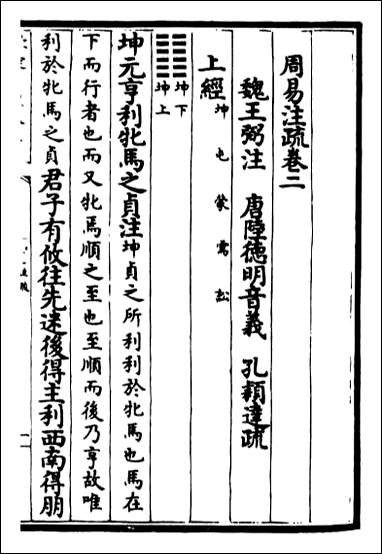 周易注疏卷二
魏王弼注　唐陸德明音義　孔穎達疏
上經 坤 屯 蒙 需 訟
坤下
坤上
坤元亨利牝馬之貞注坤貞之所利利於牝馬也馬在
下而行者也而又牝馬順之至也至順而後乃亨故唯
利於牝馬之貞君子有攸往先迷後得主利西南得朋